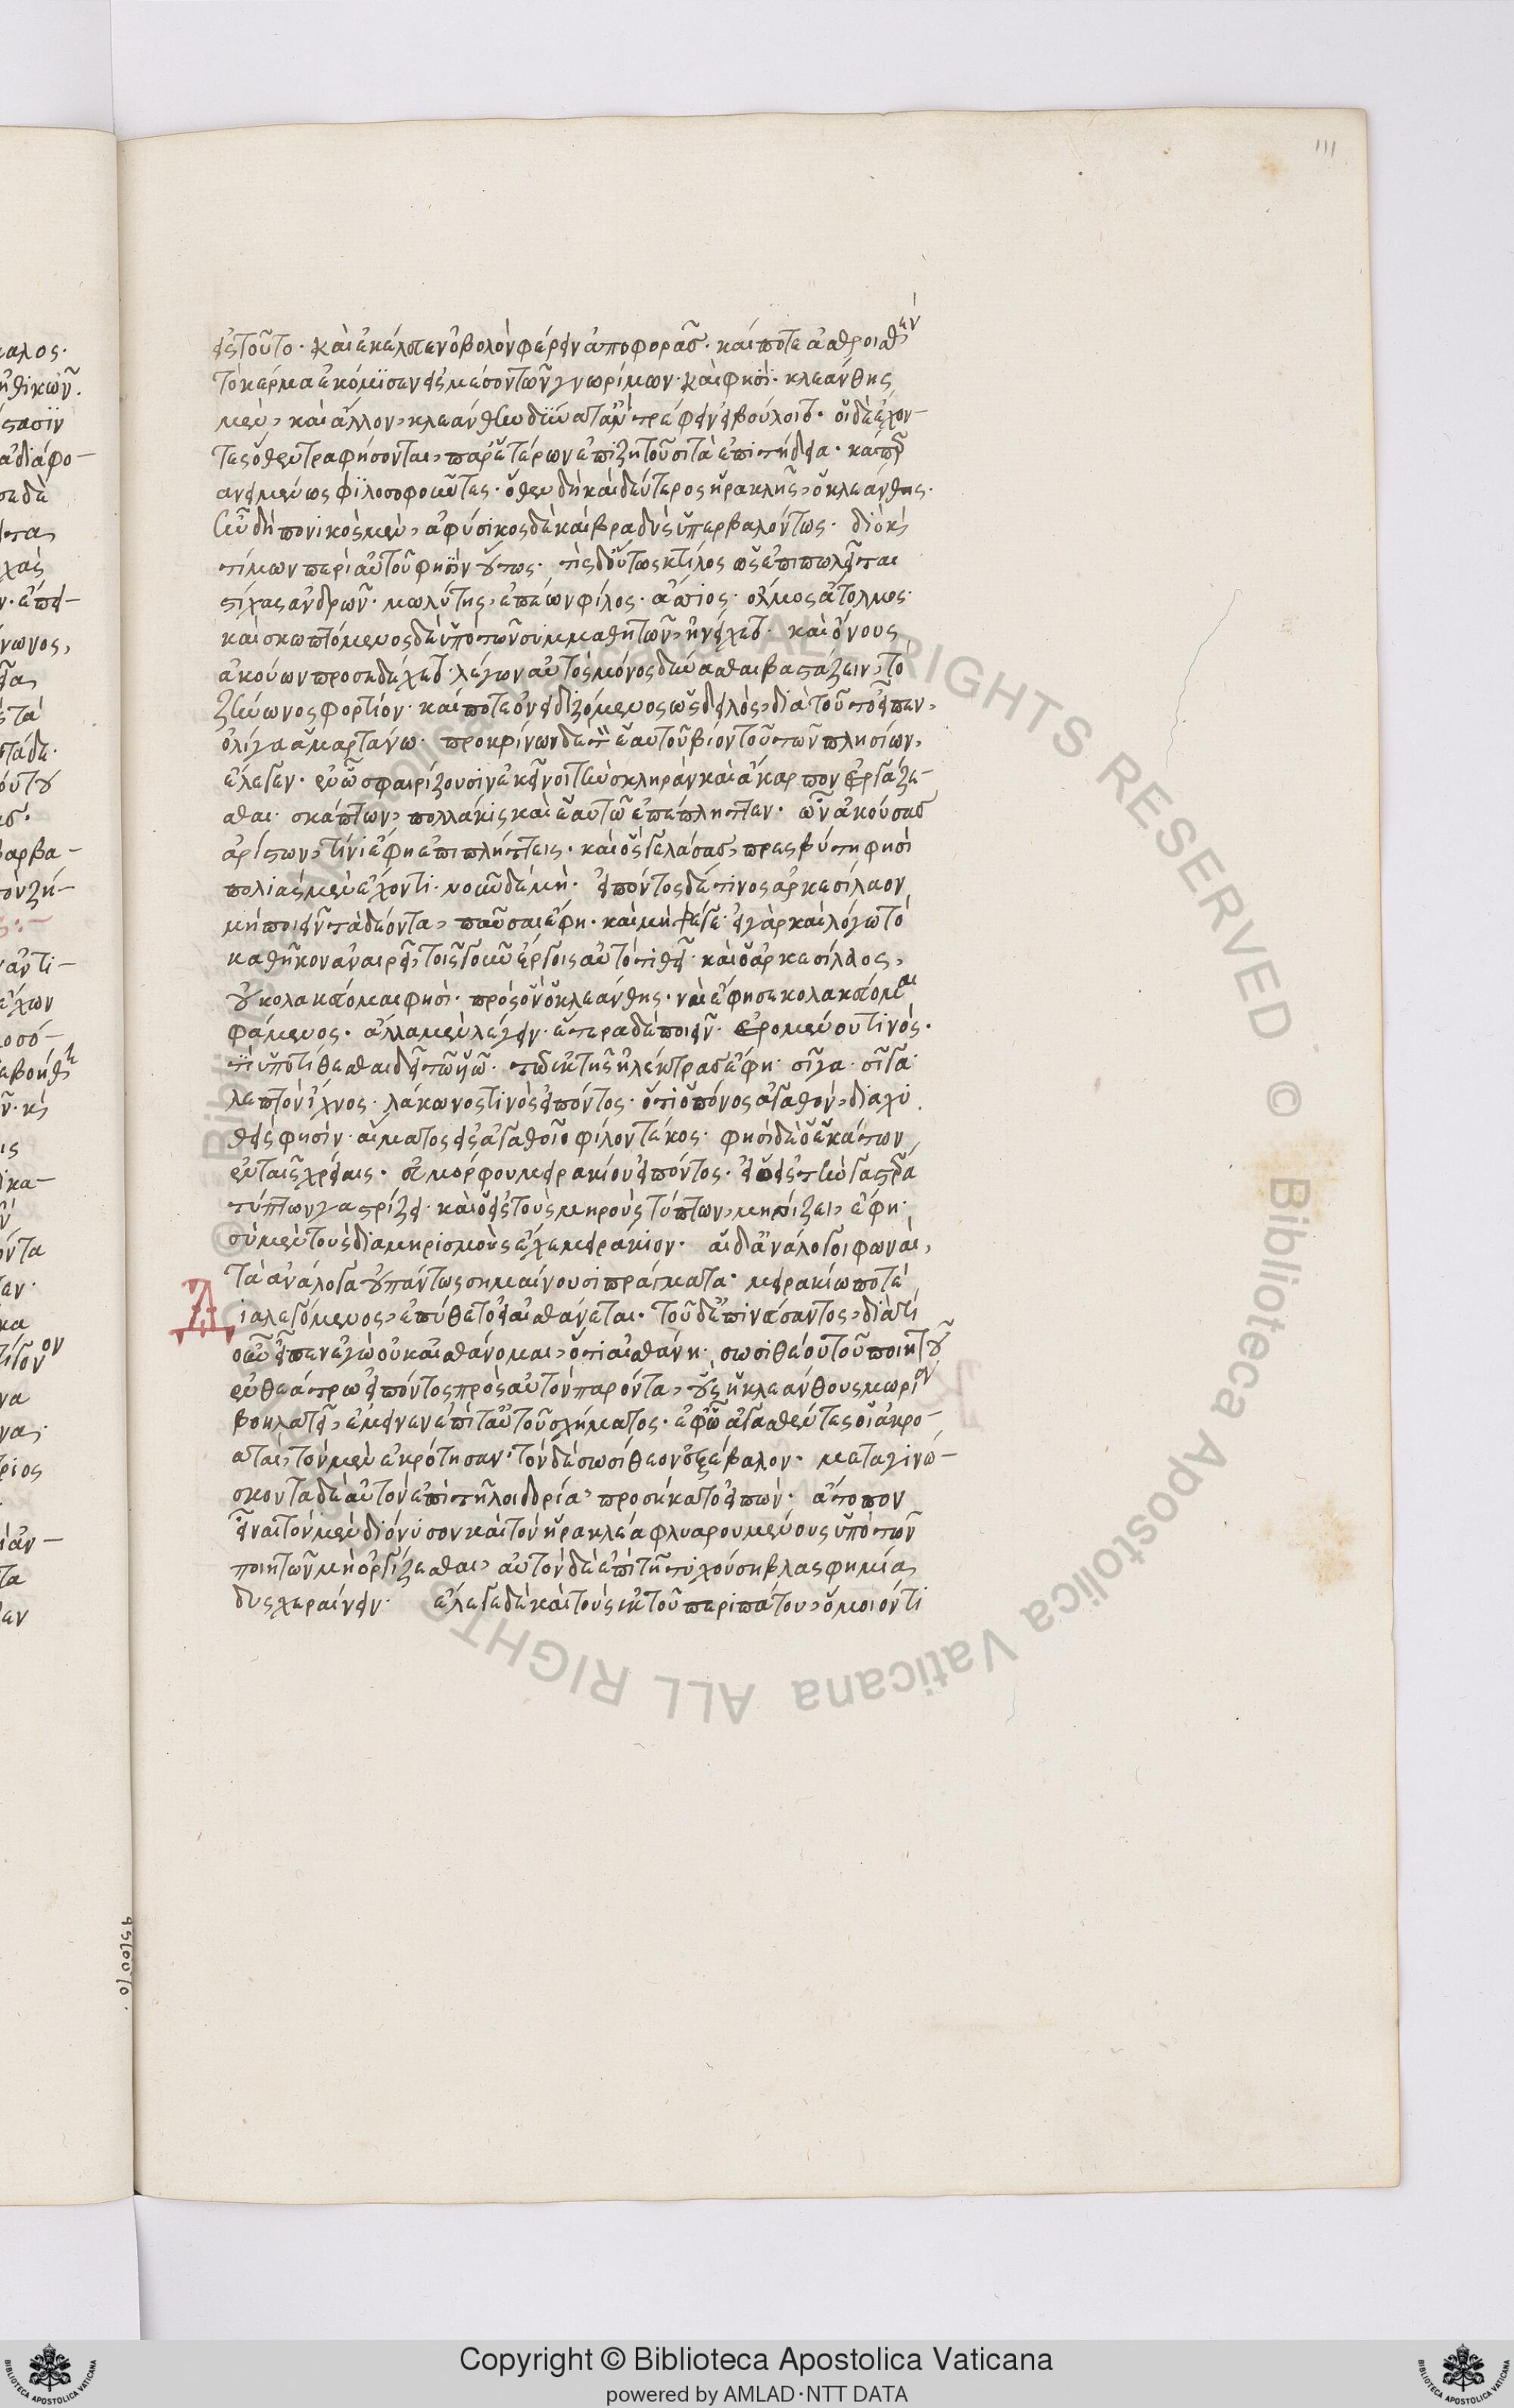 111
εἰς τοῦτο· καὶ ἐκέλευεν ὀβολὸν φέρειν ἀποφορᾶς· καί ποτε ἀθροισθὲν
τὸ κέρμα ἐκόμισεν εἰς μέσον τῶν γνωρίμων· καὶ φησί· κλεάνθης
μὲν, καὶ ἄλλον, κλεάνθην δύναιτ' ἂν τρέφειν εἰ βούλοιτο· οἱ δὲ ἔχον–
τες ὅθεν τραφήσονται, παρ' ἑτέρων ἐπιζητοῦσι τὰ ἐπιτήδεια· καίπερ
ανειμένως φιλοσοφοῦντες· ὅθεν δὴ καὶ δεύτερος ἡρακλῆς, ὁ κλεάνθης·
ἦν δὴ πονικὸς μὲν, ἀφύσικος δὲ καὶ βραδὺς ὑπερβαλόντως· διὸ καὶ
τίμων περὶ αὐτοῦ φησὶν οὕτως· τίς δ' οὗτος κτίλος ὣς ἐπιπωλεῖται
στίχας ἀνδρῶν· μωλύτης, ἐπέων φίλος· ἄσιος· ὅλμος ἄτολμος·
καὶ σκωπτόμενος δὲ ὑπὸ τῶν συμμαθητῶν, ἠνείχετο· καὶ ὄνους
ἀκούων προσεδέχετο· λέγων αὐτὸς μόνος δύνασθαι βαστάζειν, τὸ
ζήνωνος φορτίον· καί ποτε ὀνειδιζόμενος ὡς δειλὸς, διὰ τοῦτο εἶπεν,
ὀλίγα ἁμαρτάνω· προκρίνων δὲ τὸν ἑαυτοῦ βίον τοῦ τῶν πλησίων,
ἔλεγεν· ἐν ᾧ σφαιρίζουσιν ἐκεῖνοι τὴν σκληρὰν καὶ ἄκαρπον ἐργάζε–
σθαι σκάπτων, πολλάκις καὶ ἑαυτῷ ἐπέπληττεν· ὧν ἀκούσας
ἀρίστων, τίνι ἔφη ἐπιπλήττεις· καὶ ὃς γελάσας, πρεσβύτῃ φησὶ
πολιὰς μὲν ἔχοντι· νοῦν δὲ μή· εἰπόντος δέ τινος ἀρκεσίλαον
μὴ ποιεῖν τὰ δέοντα, παῦσαι ἔφη· καὶ μὴ ψέγε· εἰ γὰρ καὶ λόγῳ τὸ
καθῆκον ἀναιρεῖ, τοῖς γοῦν ἔργοις αὐτὸ τιθεῖ· καὶ ὁ ἀρκεσίλαος,
οὐ κολακεύομαι φησί· πρὸς ὃν ὁ κλεάνθης· ναὶ ἔφη σε κολακεύομαι
φάμενος· ἄλλα μὲν λέγειν· ἕτερα δὲ ποιεῖν· ἐρομένου τινός·
τί ὑποτίθεσθαι δεῖ τῷ υἱῷ· τὸ δὲ ἐκ τῆς ἠλέκτρας ἔφη· σῖγα· σῖγα·
λεπτὸν ἴχνος· λάκωνος τινὸς εἰπόντος· ὅτι ὁ πόνος ἀγαθόν, διαχυ
θείς φησιν· αἵματος εἰς ἀγαθοῖο φίλον τέκος· φησὶ δὲ ὁ ἑκάτων
ἐν ταῖς χρείαις· εὐμόρφου μειρακίου εἰπόντος· εἰ ὁ εἰς τὴν γαστέρα
τύπτων γαστρίζει· καὶ ὁ εἰς τοὺς μηροὺς τύπτων, μηρίζει, ἔφη·
σὺ μὲν τοὺς διαμηρισμοὺς ἔχε μειράκιον· αἱ δ' ἀνάλογοι φωναὶ,
τὰ ἀνάλογα οὐ πάντως σημαίνουσι πράγματα· μειρακίῳ ποτὲ
Διαλεγόμενος, ἐπύθετο εἰ αἰσθάνεται· τοῦ δ' ἐπινεύσαντος, διὰ τί
οὖν εἶπεν ἐγὼ οὐκ αἰσθάνομαι, ὅτι αἰσθάνῃ· σωσιθέου τοῦ ποιητοῦ
ἐν θεάτρῳ εἰπόντος πρὸς αὐτὸν παρόντα, οὓς ἡ κλεάνθους μωρία
βοηλατεῖ, ἔμεινεν ἐπὶ ταὐτοῦ σχήματος· ἐφ' ᾧ ἀγασθέντες οἱ ἀκρο–
αταὶ, τὸν μὲν ἐκρότησαν· τὸν δὲ σωσίθεον ἐξέβαλον· μεταγινώ–
σκοντα δὲ αὐτὸν ἐπὶ τῇ λοιδορίᾳ, προσήκατο εἰπών· ἄτοπον
εἶναι τὸν μὲν διόνυσον καὶ τὸν ἡρακλέα φλυαρουμένους ὑπὸ τῶν
ποιητῶν μὴ ὀργίζεσθαι, αὐτὸν δὲ ἐπὶ τῇ τυχούσῃ βλασφημίᾳ
δυσχεραίνειν· ἔλεγε δὲ καὶ τοὺς ἐκ τοῦ περιπάτου, ὅμοιόν τι
Copyright © Biblioteca Apostolica Vaticana
powered by AMLAD·NTT DATA